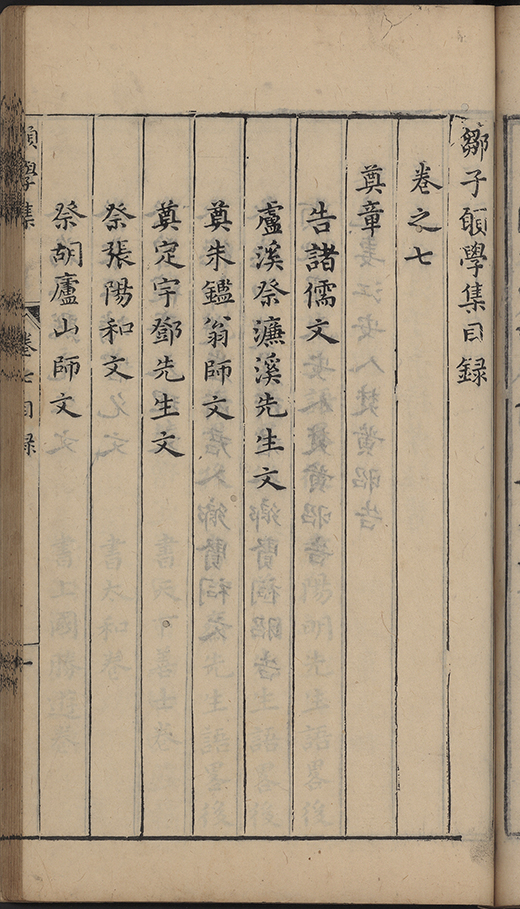 鄒子願學集目録
卷之七
奠章
告諸儒文
盧溪祭濂溪先生文
奠朱鑑翁師文
奠定宇鄧先生文
祭張陽和文
祭胡廬山師文
願學集 卷七目録 一